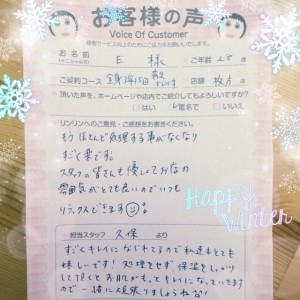 お客様の声
Voice Of Customer
接客サービス向上のためご協力をお願いいたします。
お名前 E 様 ご年齢 才
(ご契約コース 全身 店舗 枚方 店
頂いた声を、ホームページや店内でご紹介してもよろしいですか?
はい 匿名で いいえ
リンリンへのご意見・ご感想をお書きください。
もうほとんど処理する事がなくなり
すごく楽です。
スタッフの皆さんも優しくてお店の
雰囲気がとても良いのでいつも
リラックスできます
Happy
Winter
担当スタッフ 久保 より
すごくキレイになられてるので私達もとても
嬉しいです! 処理をせず保湿をしっかり
して頂くとお肌がもっとキレイになっていきます
ので一緒に頑張りましょうね